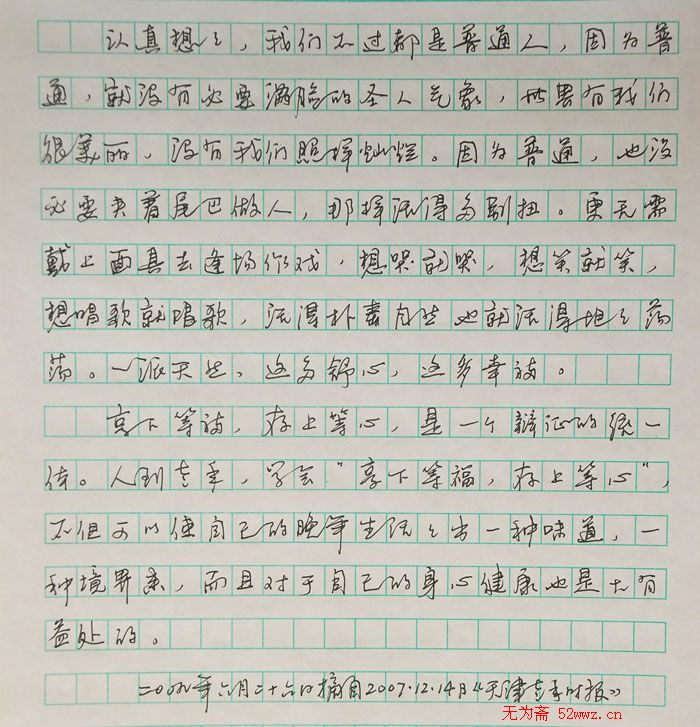 认真想々，我们不过都是普通人，因为普
通，就没有必要满脸的圣人气象，世界有我们
很美丽，没有我们照样灿烂。因为普通，也没
必要夹着尾巴做人，那样活得多别扭。更无需
戴上面具去逢场作戏，想哭就哭，想笑就笑，
想唱歌就唱歌，活得朴素自然也就活得坦々荡
荡。一派天然，这多舒心，这多幸福。
享下等福，存上等心，是一个辩证的统一
体。人到老年，学会“享下等福，存上等心”，
不但可以使自己的晚年生活々出一种味道，一
种境界来，而且对于自己的身心健康也是大有
益处的。
二〇〇九年六月二十六日摘自2007.12.14月《天津老年时报》
无为斋 52wwz.cn